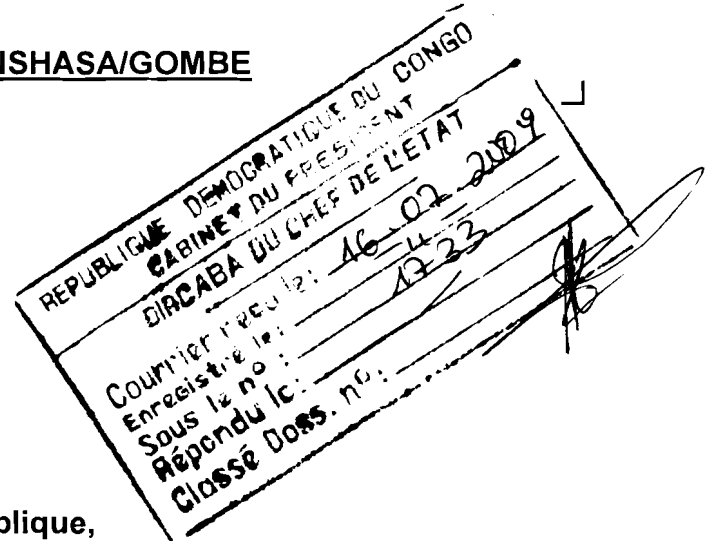 ISHASA/GOMBE
REPUBLIQUE DEMOCRATIQUE DU CONGO
CABINET DU PRESIDENT
DIRCABA DU CHEF DE L'ETAT
Courrier reçu le: 16-07-2009
Enregistré le:
Sous le n°: 1733
Répondu le:
Classé Doss. n°:
blique,